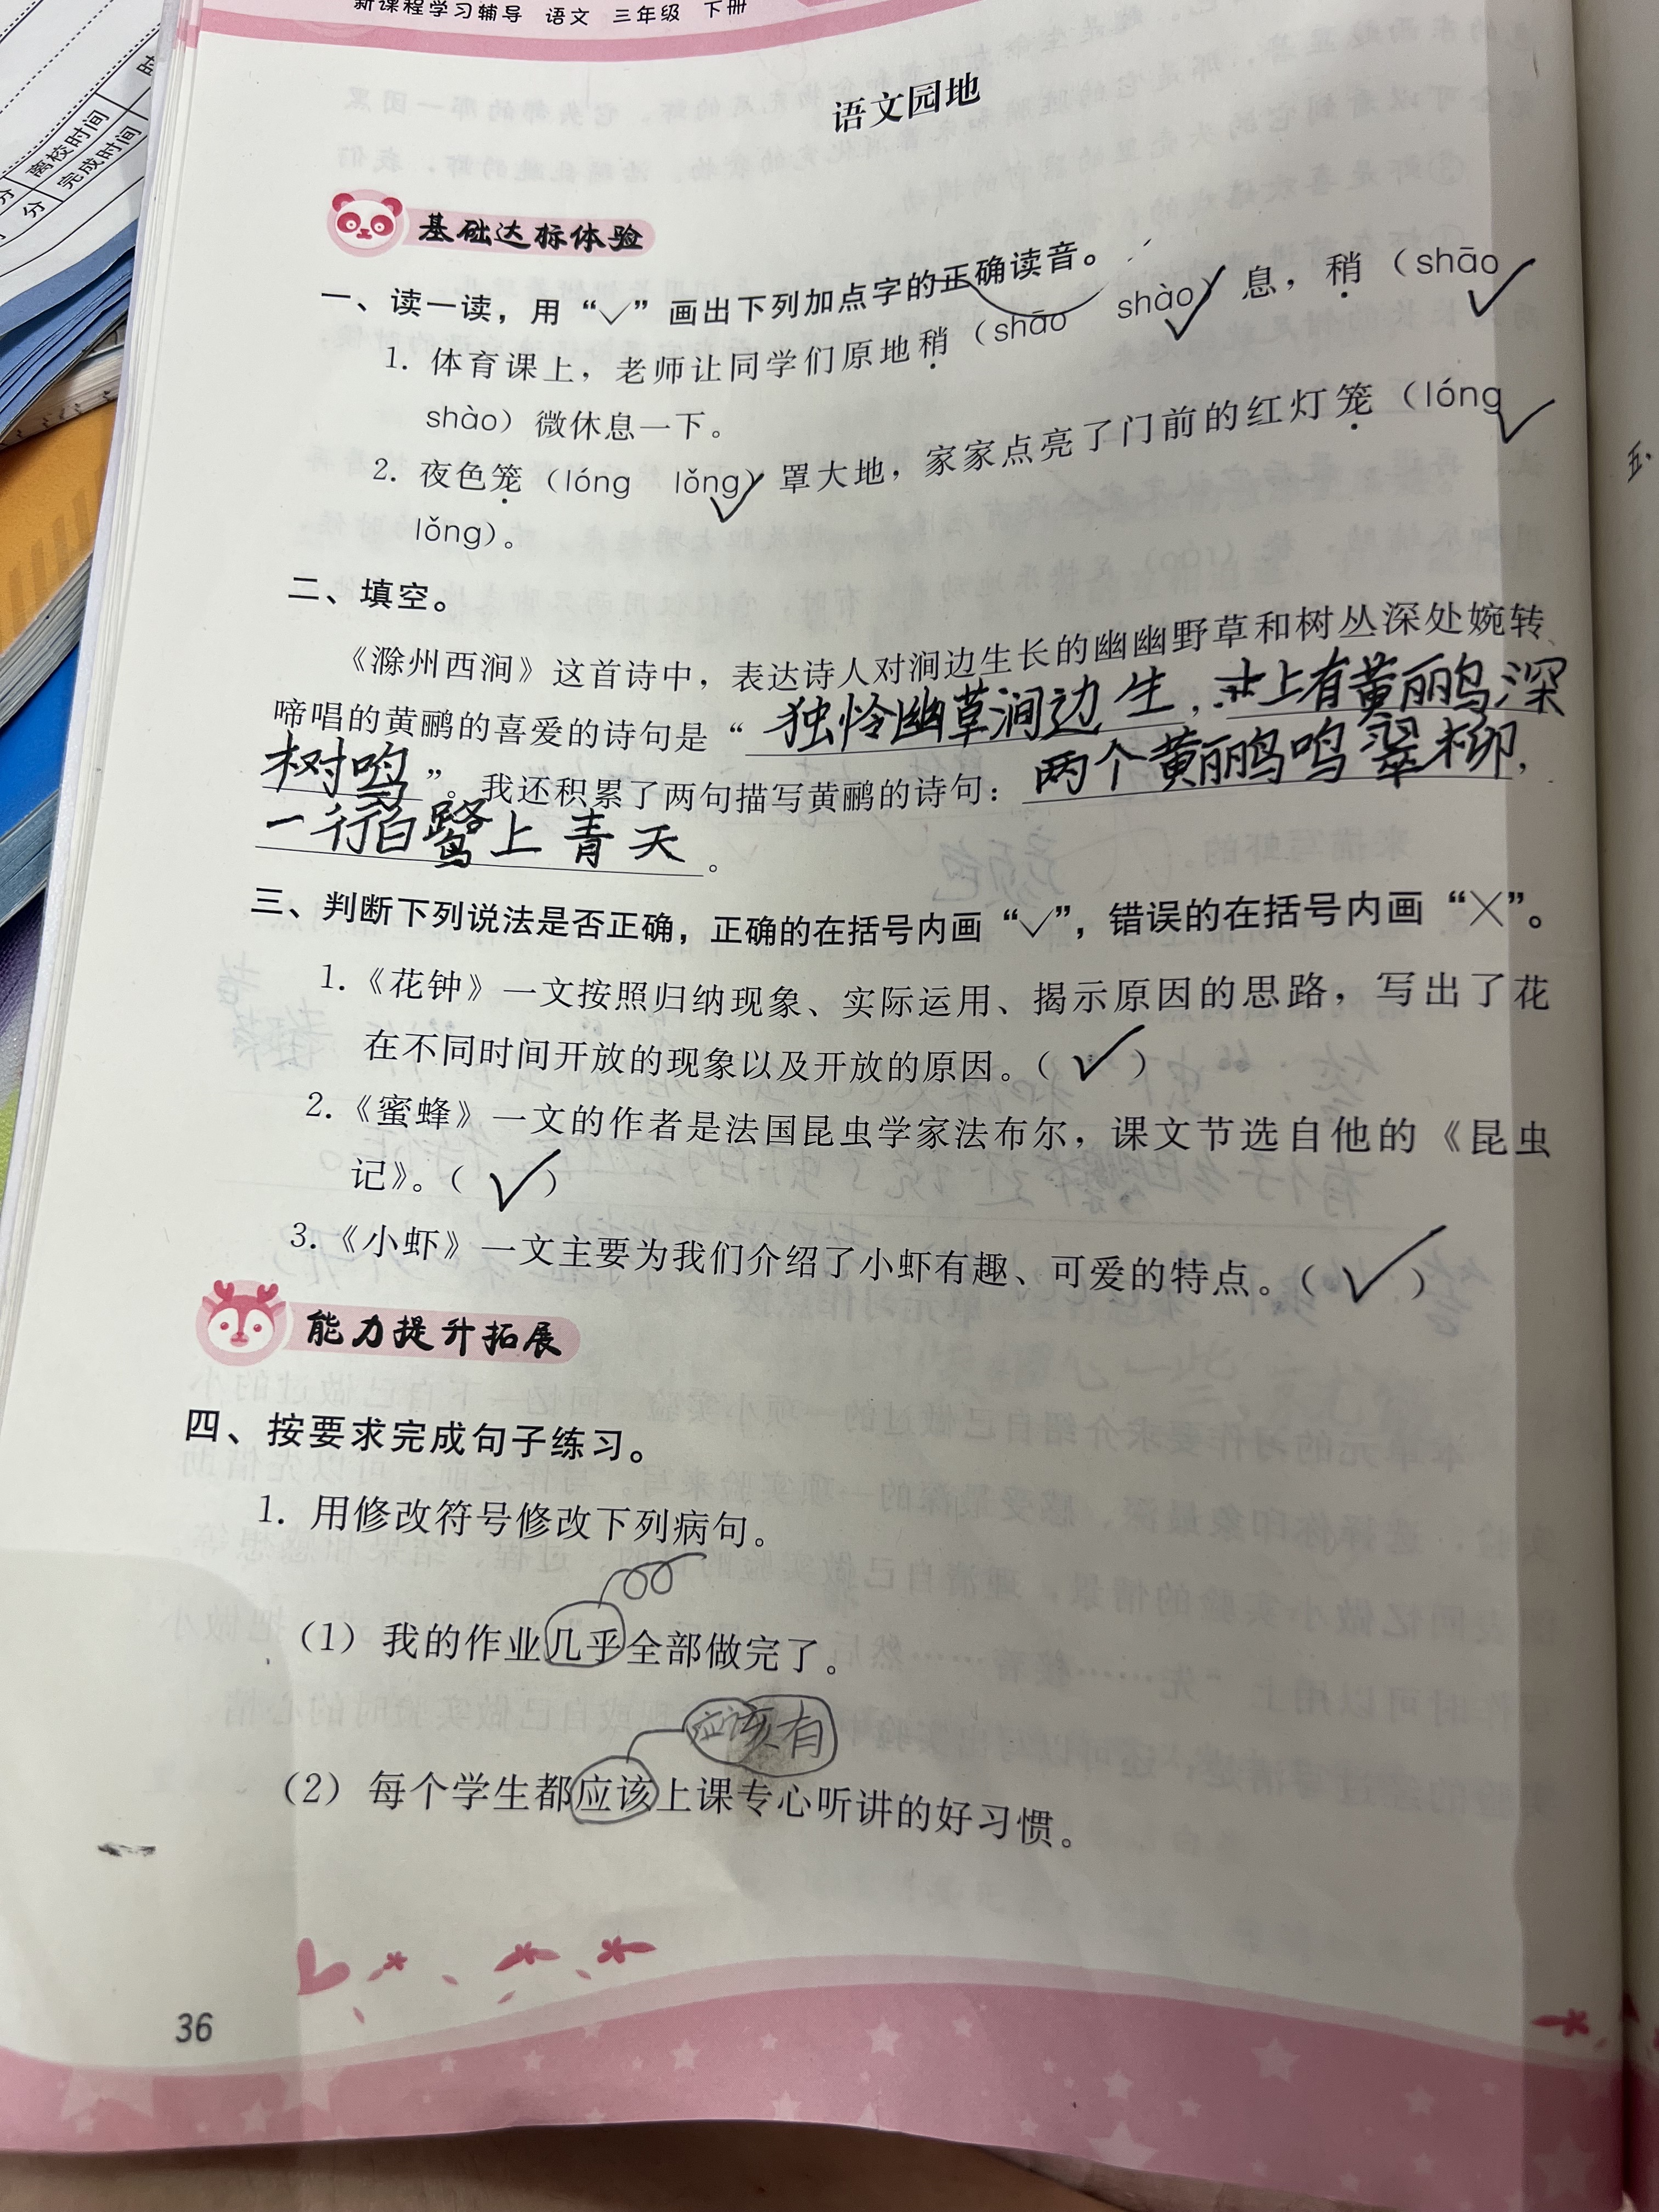 新课程学习辅导 语文 三年级 下册
离校时间
完成时间
分
分
语文园地
基础达标体验
一、读一读，用“✓”画出下列加点字的正确读音。
1. 体育课上，老师让同学们原地稍（shāo shào）✓息，稍（shāo ✓
shào）微休息一下。
2. 夜色笼（lóng lǒng）✓罩大地，家家点亮了门前的红灯笼（lóng ✓
lǒng）。
二、填空。
《滁州西涧》这首诗中，表达诗人对涧边生长的幽幽野草和树丛深处婉转
啼唱的黄鹂的喜爱的诗句是“独怜幽草涧边生，上有黄鹂鸟深
树鸣”。我还积累了两句描写黄鹂的诗句：两个黄鹂鸣翠柳，
一行白鹭上青天。
三、判断下列说法是否正确，正确的在括号内画“✓”，错误的在括号内画“×”。
1.《花钟》一文按照归纳现象、实际运用、揭示原因的思路，写出了花
在不同时间开放的现象以及开放的原因。（✓）
2.《蜜蜂》一文的作者是法国昆虫学家法布尔，课文节选自他的《昆虫
记》。（✓）
3.《小虾》一文主要为我们介绍了小虾有趣、可爱的特点。（✓）
能力提升拓展
四、按要求完成句子练习。
1. 用修改符号修改下列病句。
（1）我的作业几乎全部做完了。
应该有
（2）每个学生都应该上课专心听讲的好习惯。
36
五、